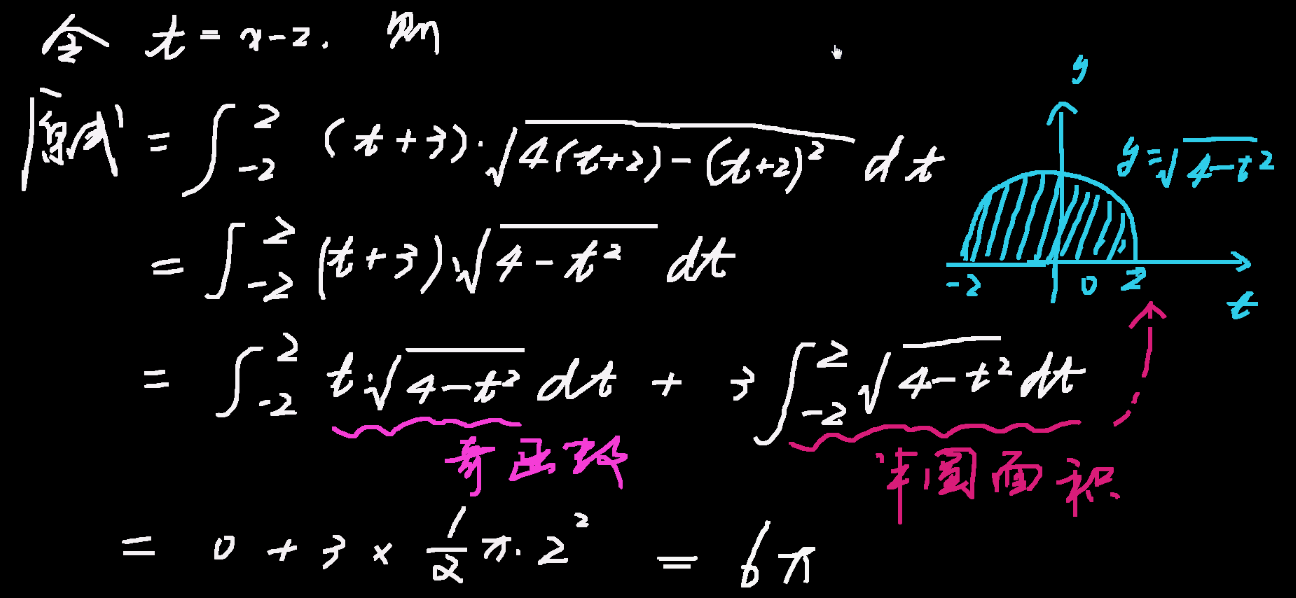 令 t = x-2. 则
原式 = ∫_{-2}^{2} (t+3)·√(4(t+2)-(t+2)²) dt
= ∫_{-2}^{2} (t+3)√(4-t²) dt
= ∫_{-2}^{2} t·√(4-t²) dt + 3∫_{-2}^{2} √(4-t²) dt
奇函数
半圆面积
= 0 + 3 × 1/2 π·2² = 6π
y
y=√(4-t²)
-2 0 2
t